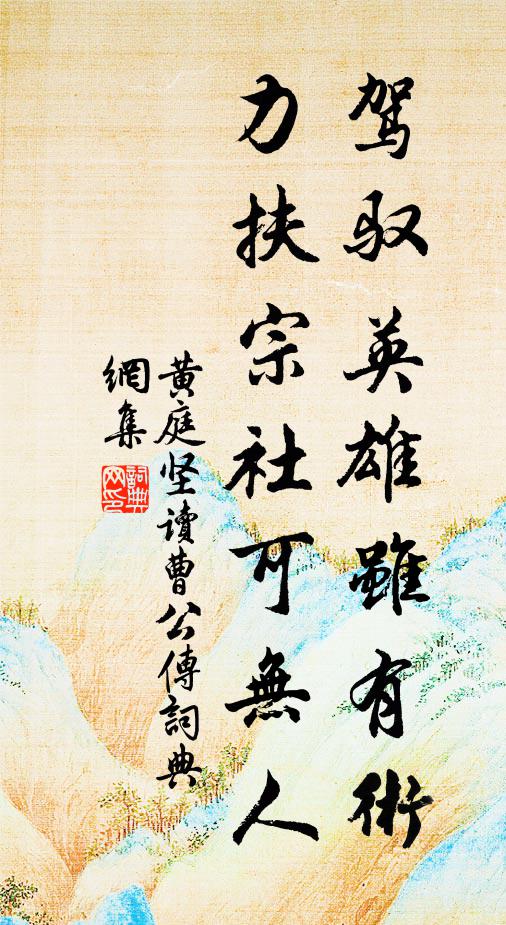 驾驭英雄雖有術
力扶宗社可無人
黄庭坚讀曹公傳詞典
網集
詞典
网印